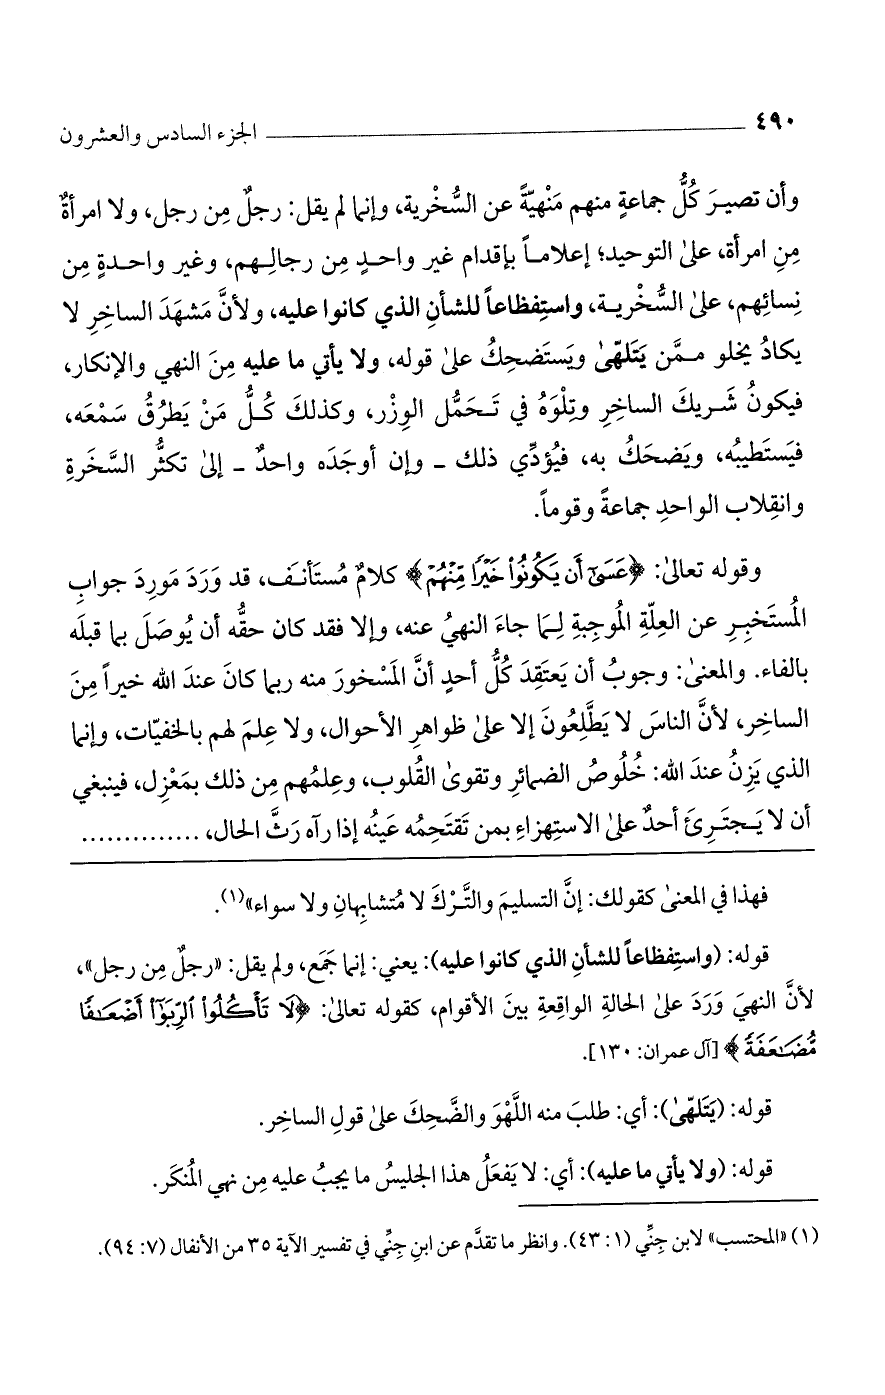 ٤٩٠ الجزء السادس والعشرون
وأن تصيرَ كُلُّ جماعةٍ منهم مَنْهيّةً عن السُّخْرية، وإنما لم يقل: رجلٌ مِن رجل، ولا امرأةٌ
مِنِ امرأة، علىٰ التوحيد؛ إعلاماً بإقدام غير واحدٍ مِن رجالِهم، وغير واحدةٍ مِن
نِسائِهم، علىٰ السُّخْرية، واستِفظاعاً للشأنِ الذي كانوا عليه، ولأنَّ مَشهَدَ الساخِرِ لا
يكادُ يخلو ممَّن يَتَلهّىٰ ويَستَضحِكُ علىٰ قوله، ولا يأتي ما عليه مِنَ النهي والإنكار،
فيكونُ شَريكَ الساخِرِ وتِلْوَهُ في تَحَمُّل الوِزْر، وكذلكَ كُلُّ مَنْ يَطرُقُ سَمْعَه،
فيَستَطيبُه، ويَضحَكُ به، فيُؤدِّي ذلك ـ وإن أوجَدَه واحدٌ ـ إلىٰ تكثُّر السَّخَرةِ
وانقِلاب الواحدِ جماعةً وقوماً.
وقوله تعالىٰ: ﴿عَسَىٰٓ أَن يَكُونُوا۟ خَيْرًا مِّنْهُمْ﴾ كلامٌ مُستَأنَف، قد وَرَدَ مَورِدَ جوابِ
المُستَخبِرِ عن العِلّةِ المُوجِبةِ لِمَا جاءَ النهيُ عنه، وإلا فقد كان حقُّه أن يُوصَلَ بما قبلَه
بالفاء. والمعنىٰ: وجوبُ أن يَعتَقِدَ كُلُّ أحدٍ أنَّ المَسْخورَ منه ربما كانَ عندَ الله خيراً مِنَ
الساخِر، لأنَّ الناسَ لا يَطَّلِعُونَ إلا علىٰ ظواهرِ الأحوال، ولا عِلمَ لهم بالخفيّات، وإنما
الذي يَزِنُ عندَ الله: خُلُوصُ الضمائرِ وتقوىٰ القُلوب، وعِلمُهم مِن ذلك بمَعْزِل، فينبغي
أن لا يَجتَرِئَ أحدٌ علىٰ الاستِهزاءِ بمن تَقتَحِمُه عَينُه إذا رآه رَثَّ الحال، ..............
فهذا في المعنىٰ كقولك: إنَّ التسليمَ والتَّرْكَ لا مُتشابِهانِ ولا سواء»(١).
قوله: (واستِفظاعاً للشأنِ الذي كانوا عليه): يعني: إنما جَمَع، ولم يقل: «رجلٌ مِن رجل»،
لأنَّ النهيَ وَرَدَ علىٰ الحالةِ الواقِعةِ بينَ الأقوام، كقوله تعالىٰ: ﴿لَا تَأْكُلُوا۟ ٱلرِّبَوٰٓا۟ أَضْعَٰفًا
مُّضَٰعَفَةً﴾ [آل عمران: ١٣٠].
قوله: (يَتَلهّىٰ): أي: طلبَ منه اللَّهْوَ والضَّحِكَ علىٰ قولِ الساخِر.
قوله: (ولا يأتي ما عليه): أي: لا يَفعَلُ هذا الجليسُ ما يجبُ عليه مِن نهي المُنكَر.
(١) «المحتسب» لابن جِنِّي (١: ٤٣). وانظر ما تقدَّم عن ابنِ جِنِّي في تفسير الآية ٣٥ من الأنفال (٧: ٩٤).